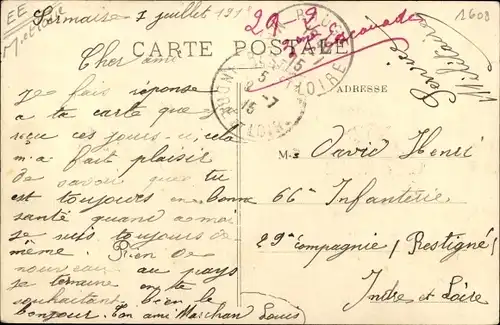 EE
Sermaise 7 juillet 191
1608
CARTE POSTALE
Service
Militaire
29 2
INDRE LOIRE
15
5
2-7
15
ADRESSE
Cher ami
Je fais réponse
a ta carte que j'ai
reçue ces jours-ci, cela
m'a fait plaisir
de savoir que tu
est toujours en bonne
santé quand a moi
je suis toujours de
même. Rien de
nouveau au pays
je termine en te
souhaitant bien le
bonjour. Ton ami Marchan Louis
M David Henri
66e Infanterie
29e Compagnie / Restigné
Indre et Loire